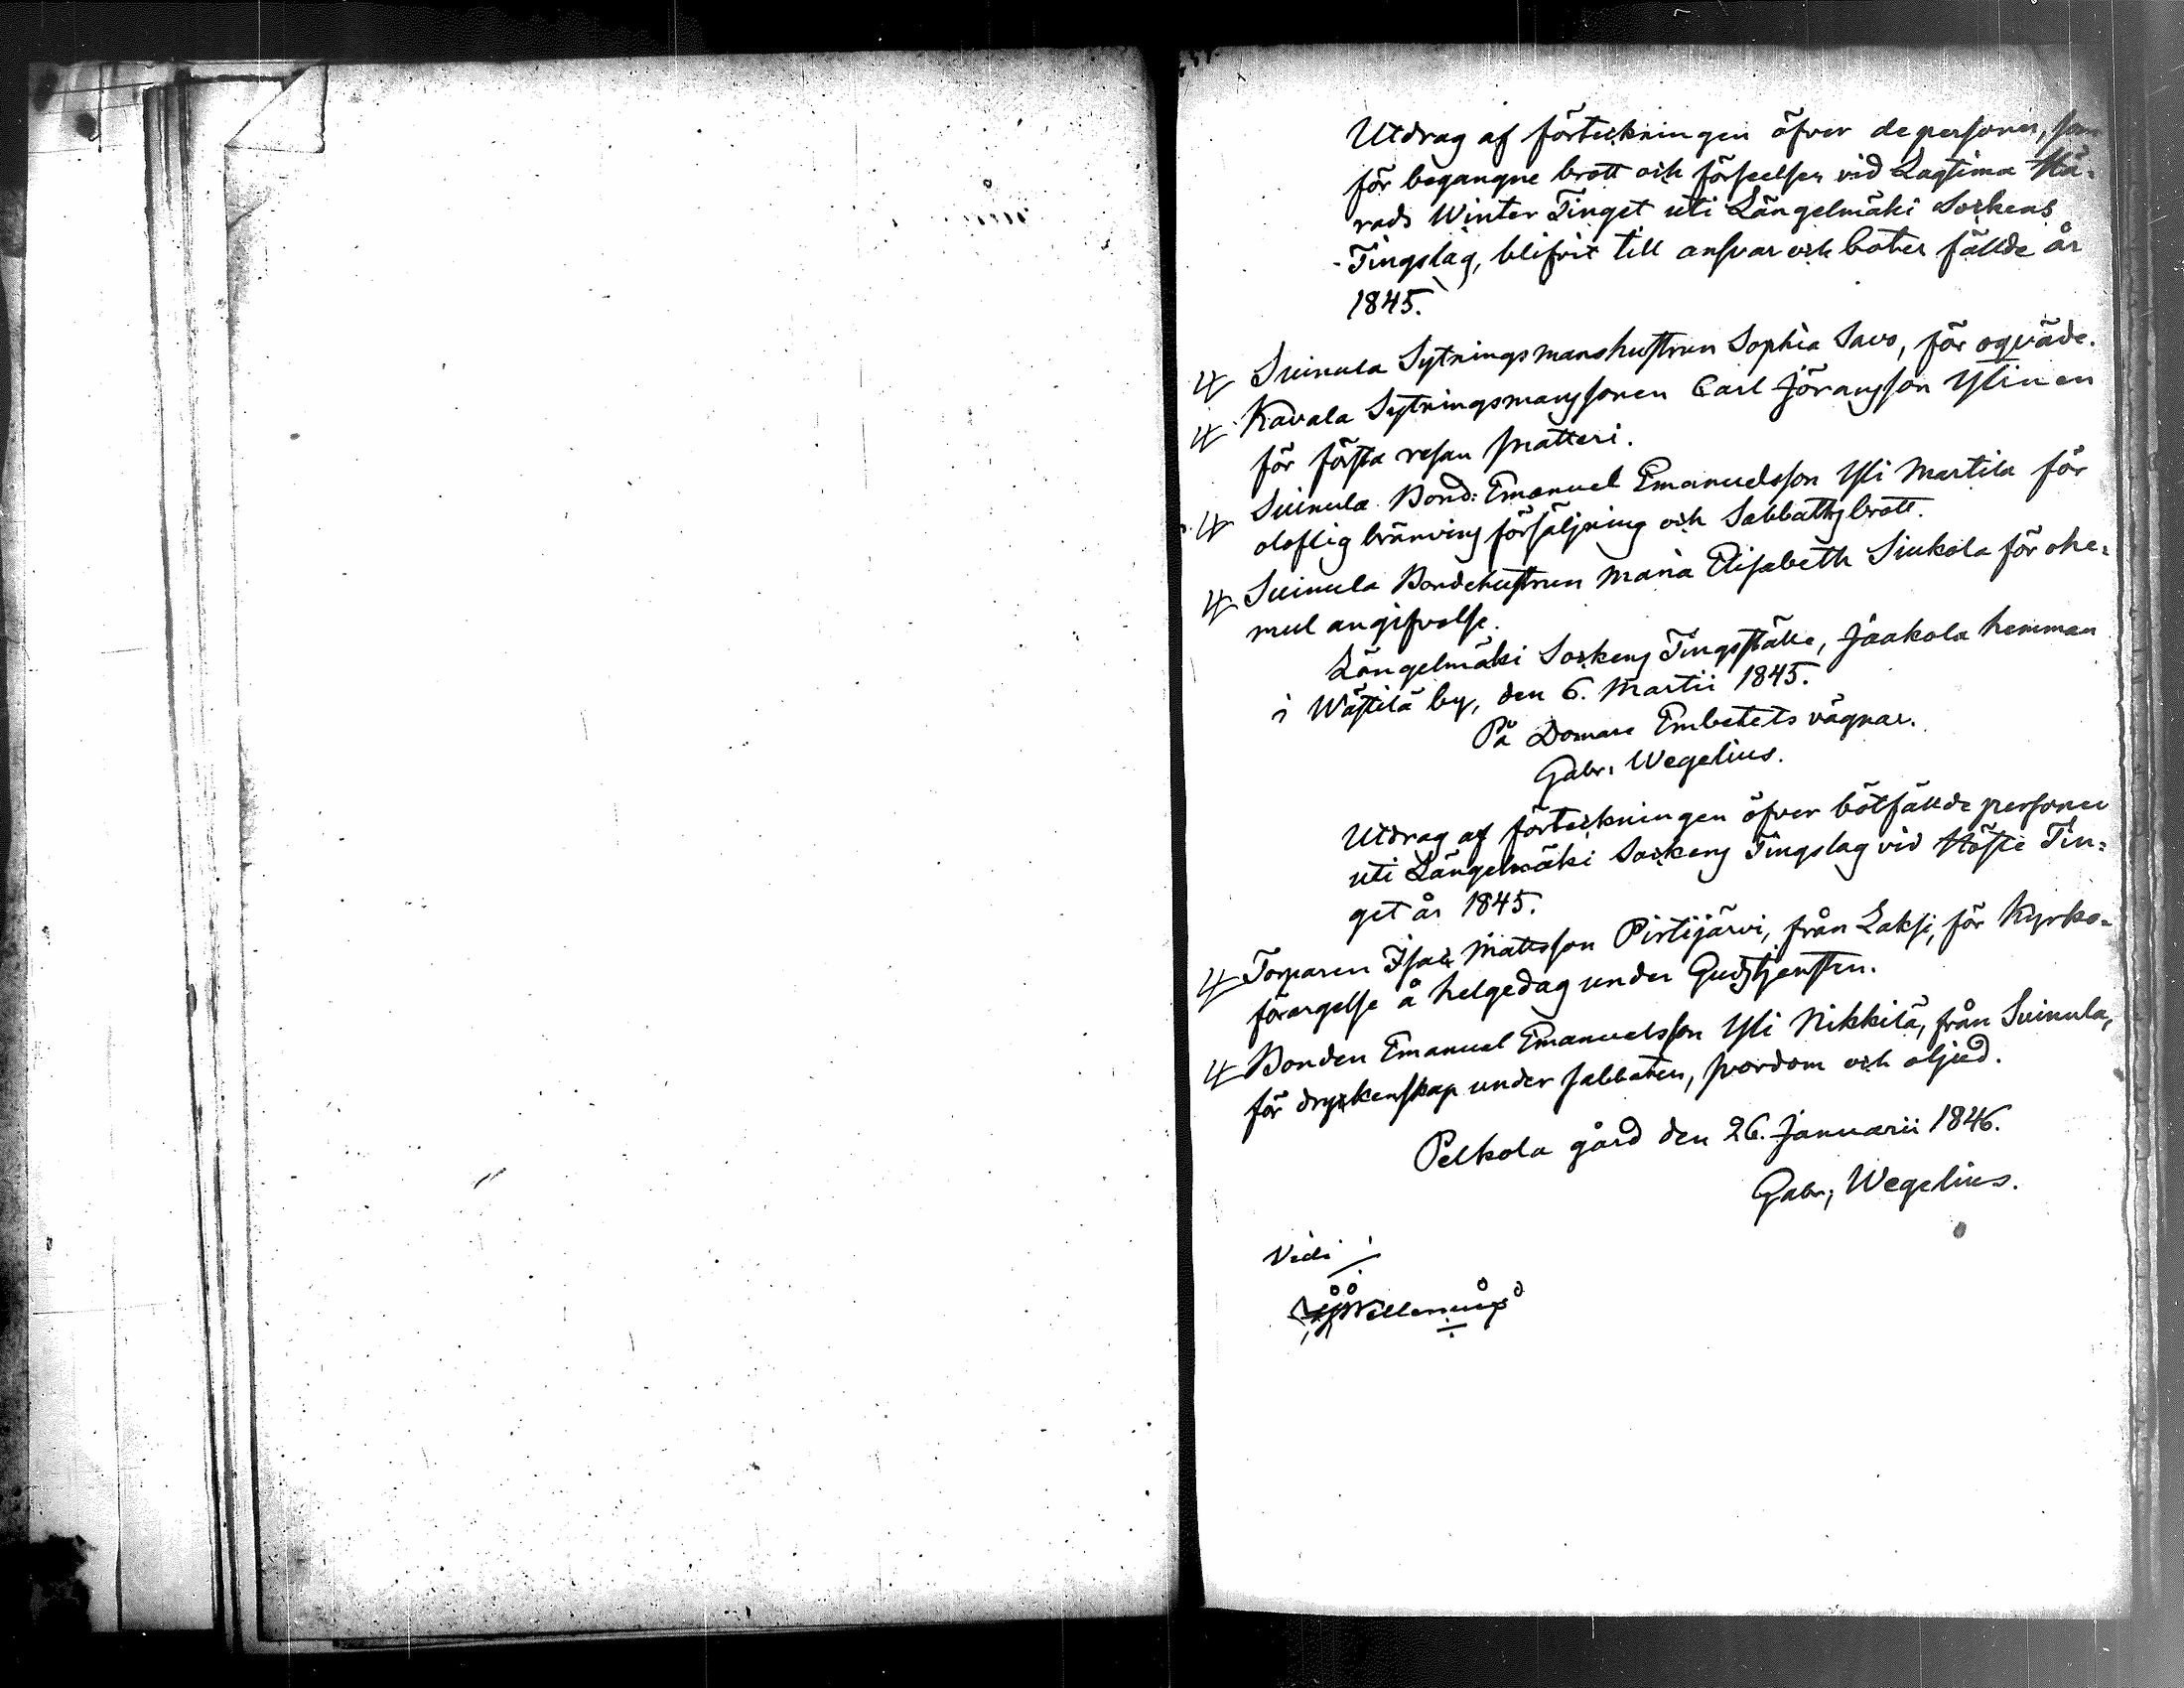 Utdrag af förteckningen öfver de personer, som
för begangne brott och förseelser vid Lagtima Hä-
rads Winter Tinget uti Längelmäki Sockens
Tingslag, blifvit till ansvar och böter fällde år
1845.
Suinula Sytningsmanshustrun Sophia Savo, för oqväde.
Kavala Sytningsmanssonen Carl Jöransson Ylinen
för första resan snatteri.
Suinula Bond: Emanuel Emanuelsson Yli Martila för
oloflig bränvins försäljning och Sabbathsbrott.
Suinula Bondehustrun Maria Elisabeth Siukola för ohe-
mul angifvelse.
Längelmäki Sockens Tingsställe, Jaakola hemman
i Wästilä by, den 6. Martii 1845.
På Domare Embetets vägnar.
Gabr: Wegelius.
Utdrag af förteckningen öfver bötfällde personer
uti Längelmäki Sockens Tingslag vid Höste Tin-
get år 1845.
Torparen Isak Mattsson Pirttijärvi, från Laksi, för Kyrko-
förargelse å helgedag under Gudstjensten.
Bonden Emanuel Emanuelsson Yli Nikkilä, från Suinula,
för dryckenskap under sabbaten, svordom och oljud.
Pelkola gård den 26. Januarii 1846.
Gabr; Wegelius.
Vidi